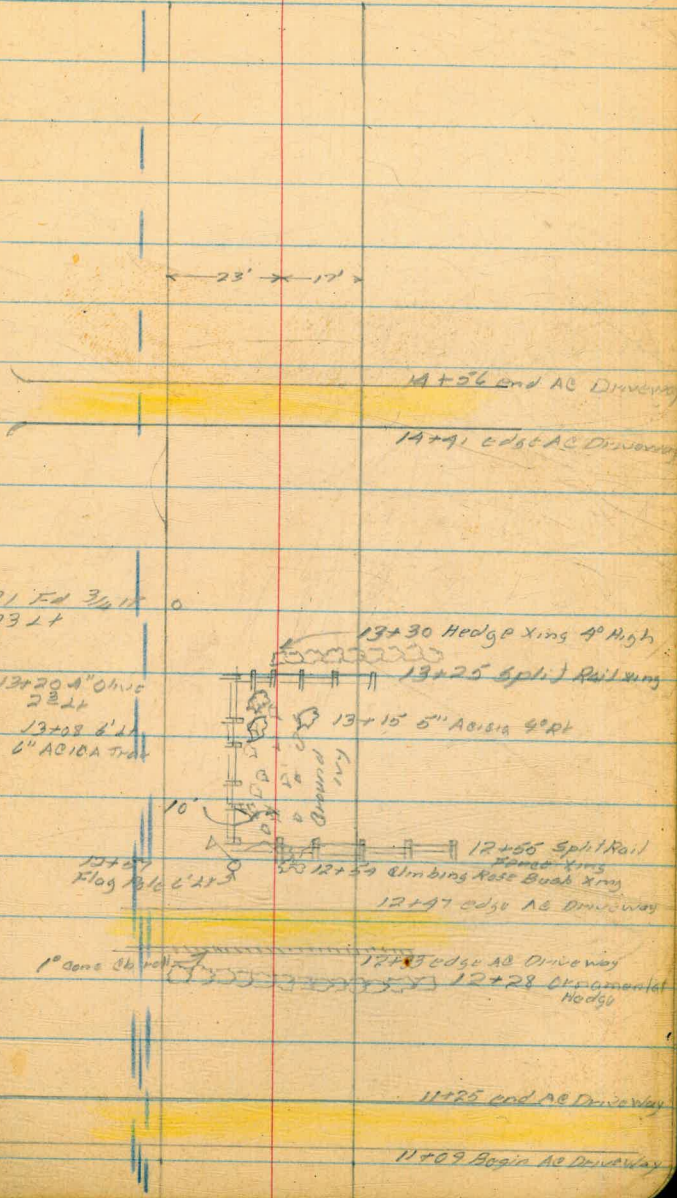 23' 17'
14+56 End AC Driveway
14+41 Edge AC Driveway
Fd 3/4
13+30 Hedge Xing 4° High
13+25 Split Rail Xing
13+20 4" Olive
2 Lt
13+15 5" Acicia 4° Rt
13+08 6' Lt
6" ACICA
Ground
Ivy
10'
12+55 Split Rail
Fence Xing
12+57
Flag Pole 6' Lt
12+54 Climbing Rose Bush Xing
12+47 edge AC Driveway
12+33 edge AC Driveway
1° Conc Cb
12+28 Ornamental
Hedge
11+25 End AC Driveway
11+09 Begin AC Driveway